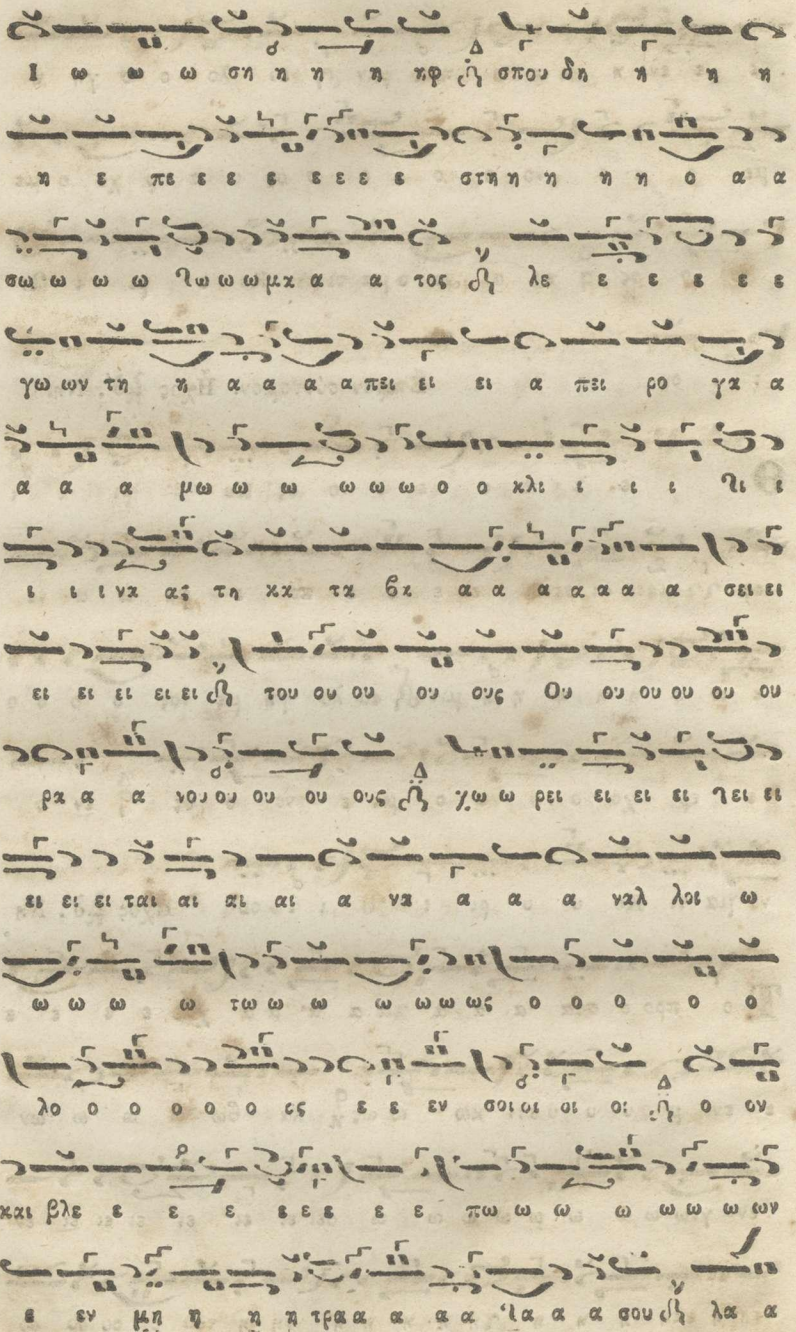 Ι ω ω ω ση η η η ηφ σπου δη η η η
η ε πε ε ε ε ε ε ε ε στη η η η η ο α α
σω ω ω ω ω ω ω μα α α τος λε ε ε ε ε ε
γω ων τη η α α α α πει ει ει α πει ρο γα α
α α α μω ω ω ω ω ω ο ο κλι ι ι ι ι ι
ι ι ι να ας τη κα τα βα α α α α α α σει ει
ει ει ει ει ει του ου ου ου ους Ου ου ου ου ου ου
ρα α α νου ου ου ου ους χω ω ρει ει ει ει ει ει
ει ει ει ται αι αι αι α να α α α ναλ λοι ω
ω ω ω ω τω ω ω ω ω ω ως ο ο ο ο ο
λο ο ο ο ο ο ος ε ε εν σοι οι οι οι ο ον
και βλε ε ε ε ε ε ε ε ε πω ω ω ω ω ω ω ων
ε εν μη η η η τρα α α α α α α α σου λα α